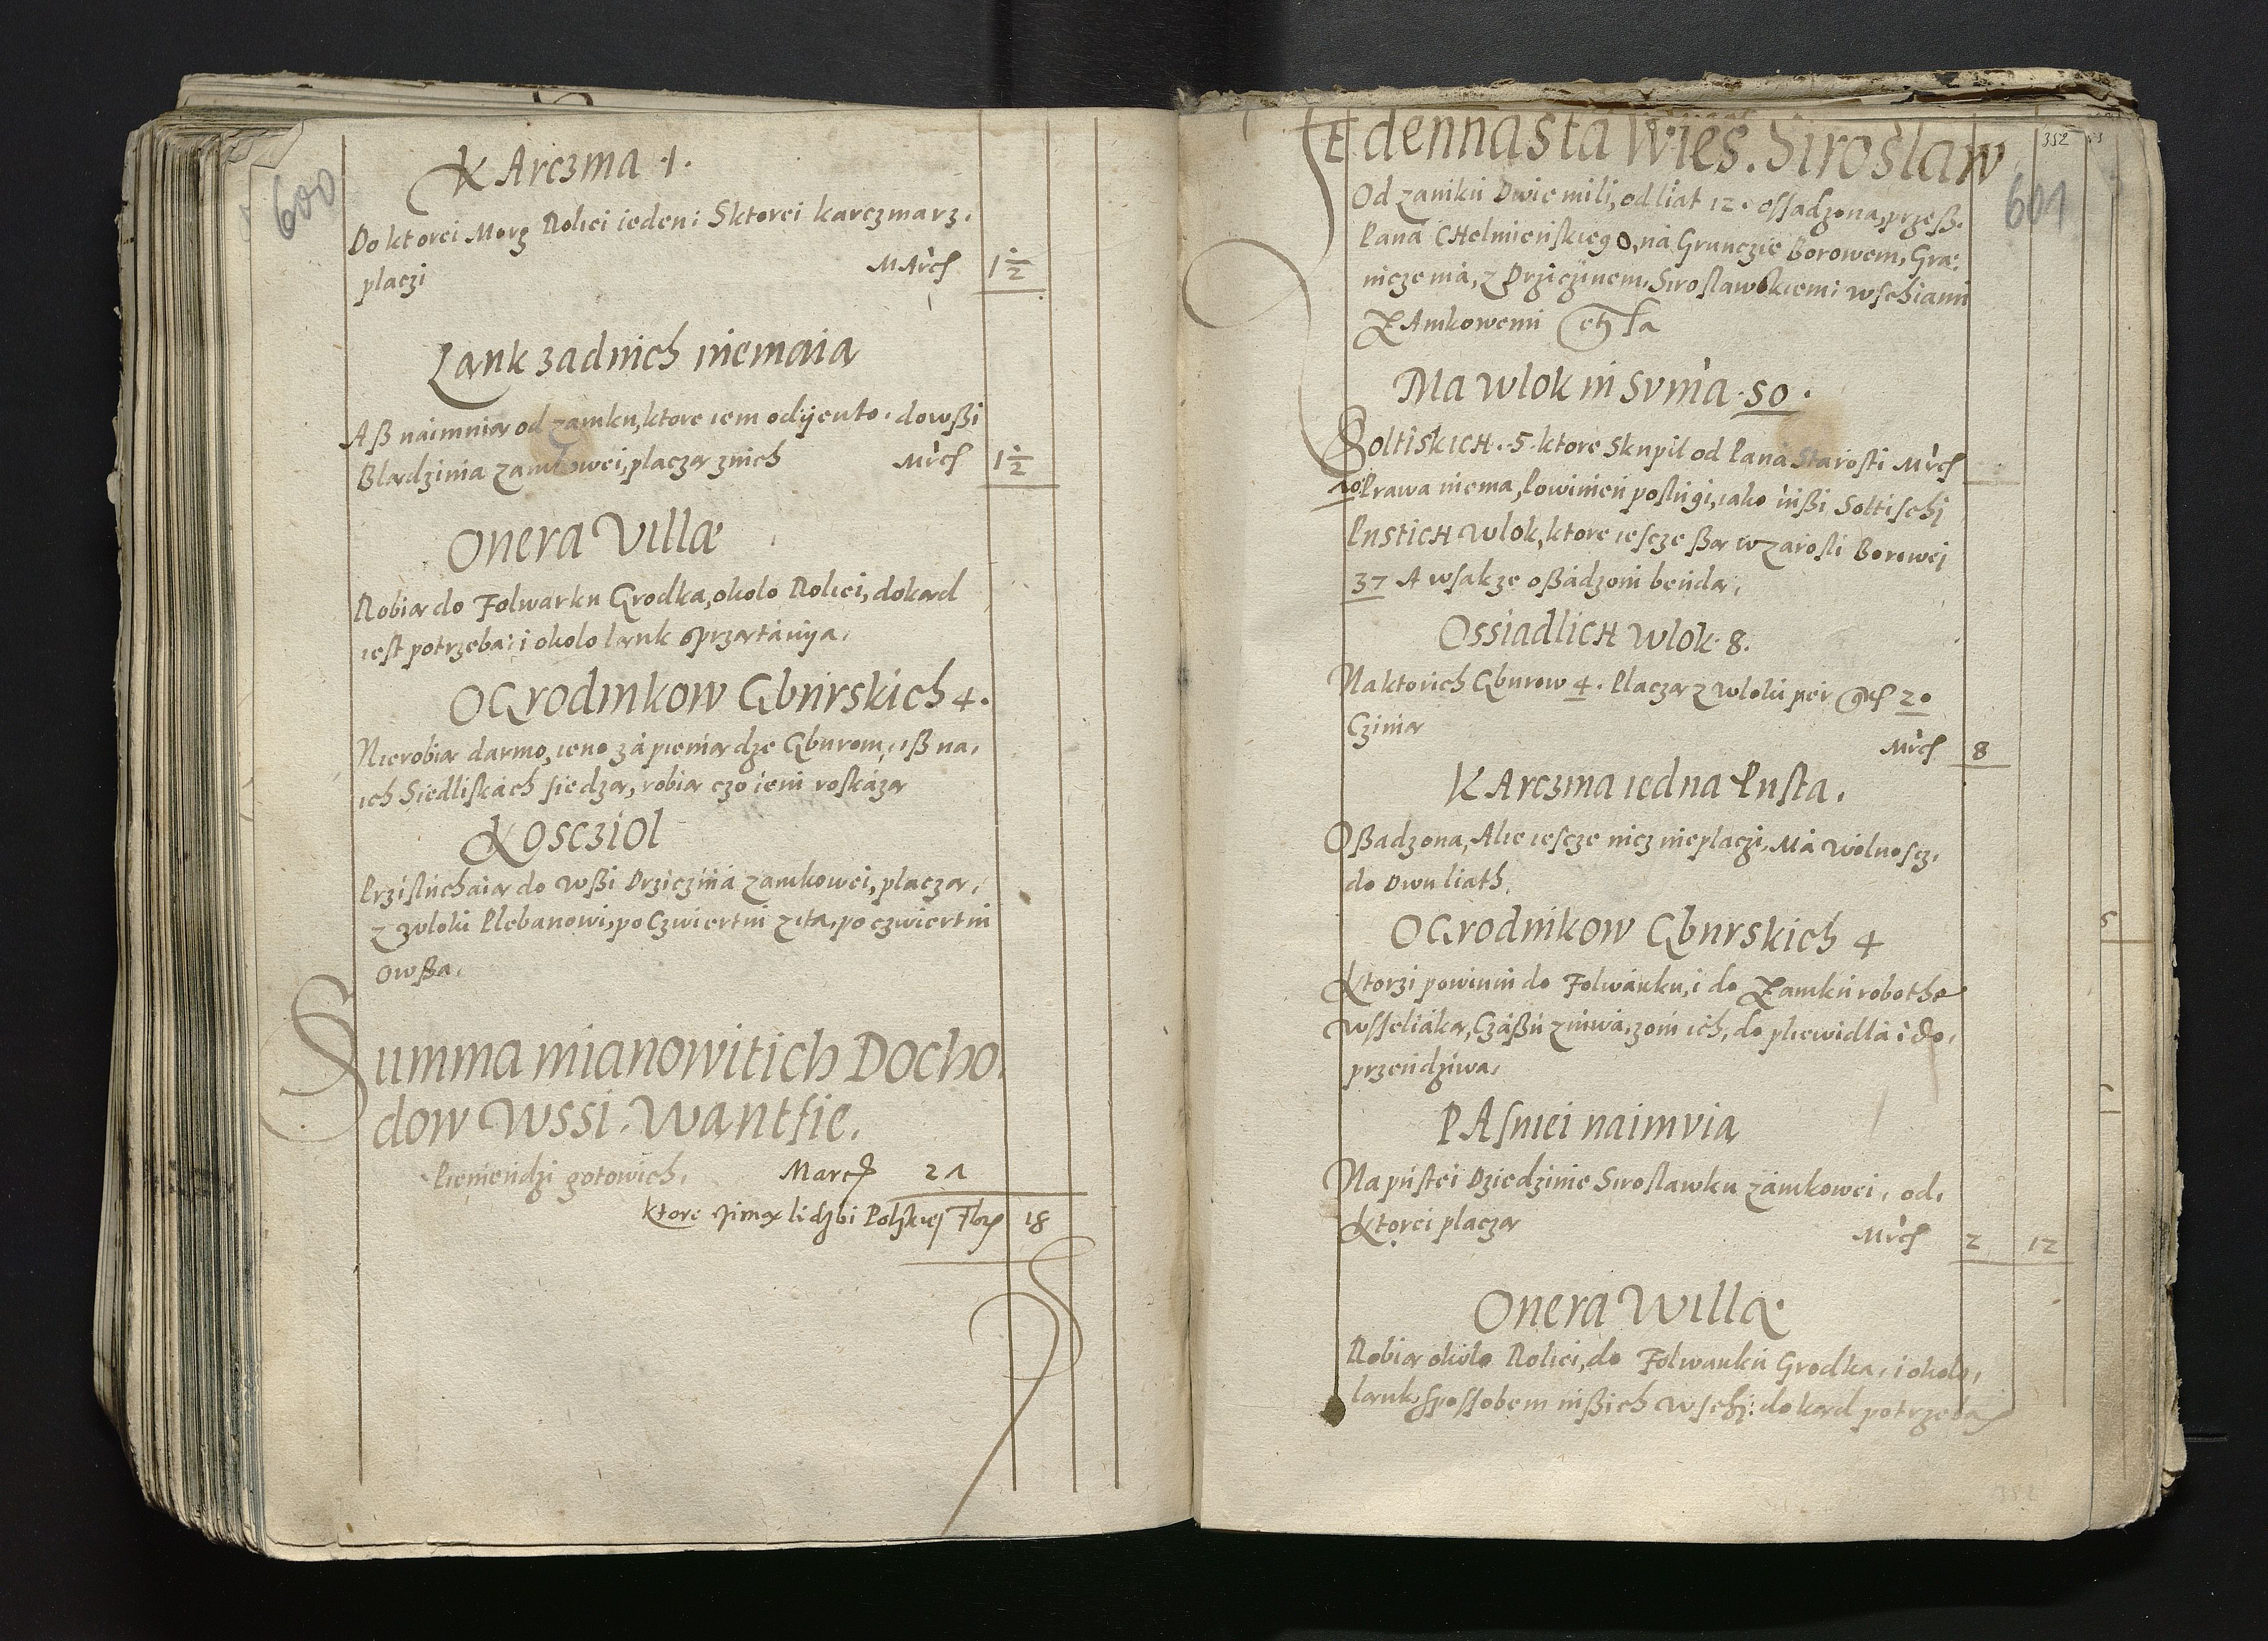 600
KArczma 1.
Do ktorei Morg Roliei ieden: Sktorei karczmarz.
placzi MArcß 1 1/2
Lank zadnich niemaia
Aß naimuia od zamku, ktore iem odijento. dowßi
Bladzinia zamkowei, placza znich Mrcß 1 1/2
Onera Villæ
Robia do Folwarku Grodka, okolo Roliei, dokad
iest potrzeba: i okolo lank sprzatanija.
OGrodnikow Gburskich 4.
Nierobia darmo, ieno zá pieniadze Gburom, iß na.
ich Siedliskách siedza, robia czo iem roskáza
Kosczioł
Przisluchaia do wßi Drziczina zamkowei, placza.
z wloki Plebanowi, po Czwiertni zita, po czwiertni
owßa.
Summa mianowitich Docho.
dow Wssi. Wantfie.
Pieniendzi gotowich. Marcß 21
ktore liczbi Polskiej Flor 18
352
601
IEdennasta Wies. Siroslaw
Od zamku Dwie mili, od liat 12. ossadzona, przeß.
Pana CHelmieńskiego, na Grunczie Borowem, Gra:
niczenia, z Drziczinem, Siroslawskiemi wschiami
ZAmkowemi etz
Ma wlok in Suma. 50.
SoltiskicH. 5. ktore Skupil od Pana Starosti Mrcß
10 Prawa niema, Powinien poslugi, iako inßi Soltischi
PusticH wlok, ktore iescze ßa w zarosli Borowej
37 A wsakze oßádzoni benda.
OssiadlicH wlok. 8.
Na ktorich Gburow 4. Placza z wloki per gr 20
Czinia Mrcß 8
KArczma iedna Pusta.
Oßadzona, Alie iescze nicz nieplaczi. Má wolnoscz.
do Dwu liath.
OGrodnikow Gburskich 4
Ktorzi powinni do Folwarku, i do Zamku robothe
wsseliáka, Czáßu zniwá, zoni ich, do pliewidlá i do.
przendziwa.
PAsniei naimuia
Na pustei Dziedzinie Siroslawku zamkowei, od.
Ktorei placza Mrcß 2 12
Onera Willæ
Robia okolo Roliei, do Folwarku Grodka, i okolo,
lank, spossobem inßich wschj: dokad potrzeba